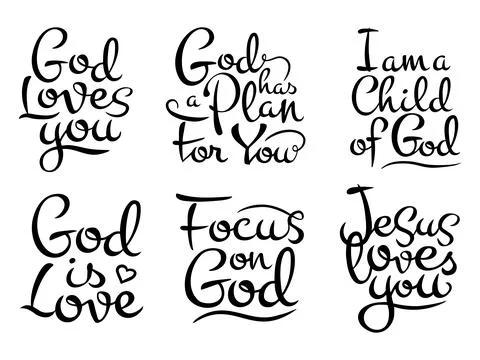 God
Loves
you
God
has
a Plan
For You
I am a
Child
of God
God
is
Love
Focus
on
God
Jesus
loves
you